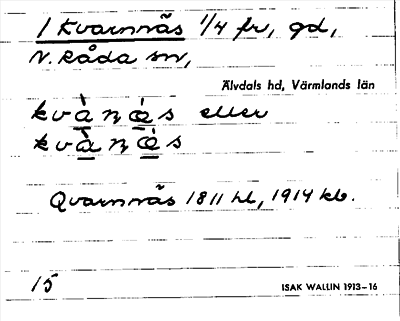 1 Kvarnnäs 1/4 fr, gd,
N. Råda sn,
Älvdals hd, Värmlands län
kvànǽs eller
kvànǽs
Qvarnnäs 1811 hl, 1914 kb.
15
ISAK WALLIN 1913–16